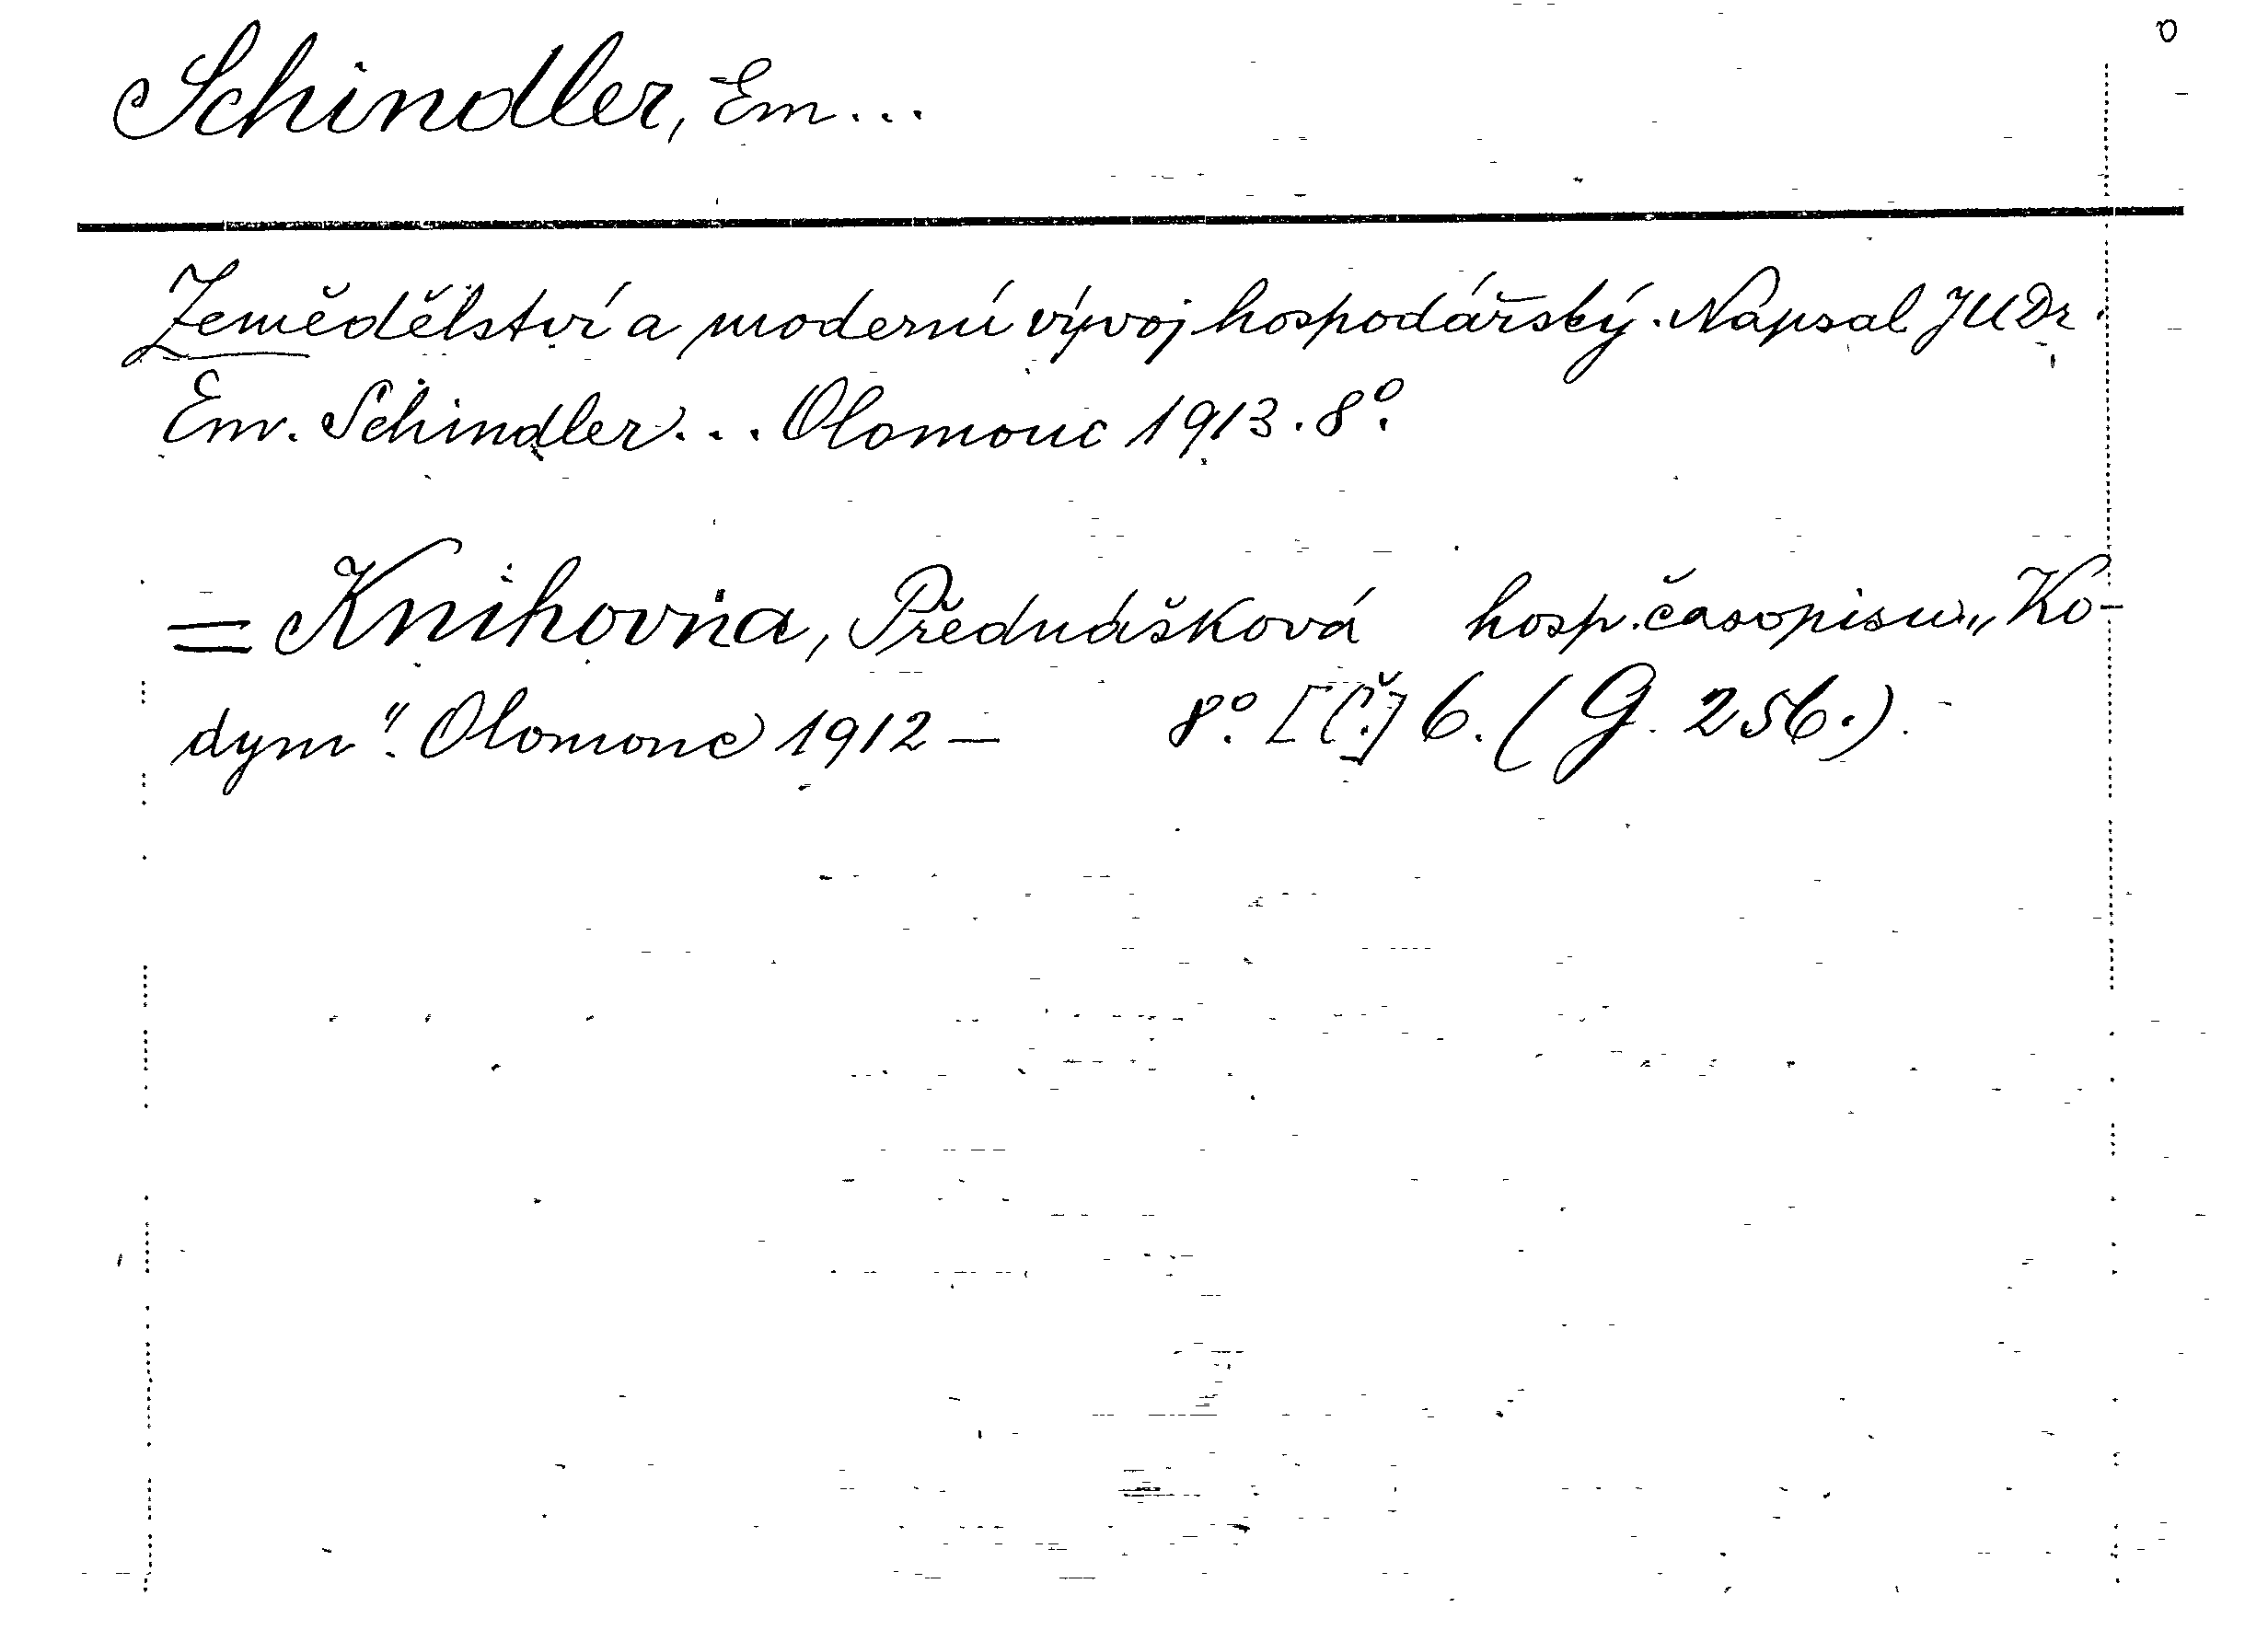 o
Schindler, Em...
Zemědělství a moderní vývoj hospodářský. Napsal JUDr.
Em. Schindler... Olomouc 1913. 8°.
= Knihovna, Přednášková hosp. časopisu „Ko-
dym". Olomouc 1912 — 8°. [Č.] 6. (G. 256.).